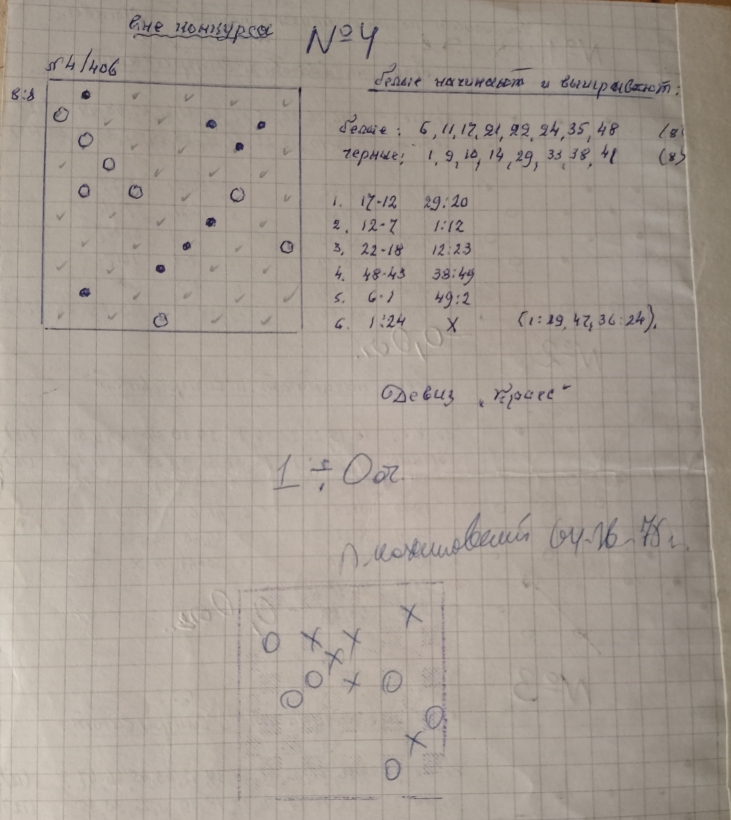 вне конкурса
№4
№4/406
белые начинают и выигрывают:
8:8
белые: 6, 11, 17, 21, 22, 24, 35, 48 (8)
черные: 1, 9, 10, 14, 29, 33, 38, 41 (8)
1. 17-12 29:20
2. 12-7 1:12
3. 22-18 12:23
4. 48-43 38:49
5. 6-1 49:2
6. 1:24 X (1:29, 47, 36:24).
Девиз
1 ÷ 0 от.